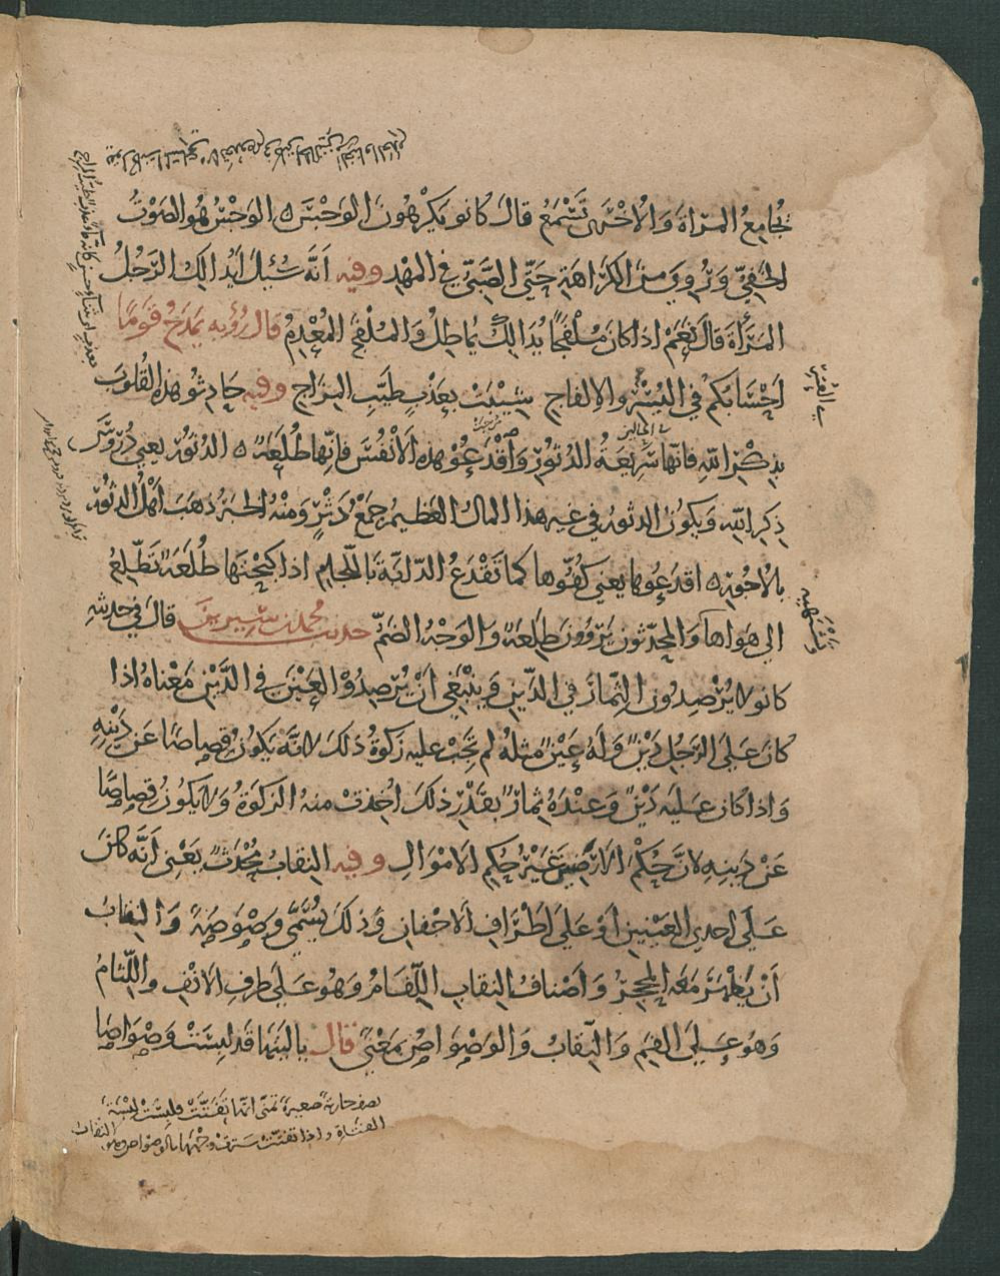 يجامع المرأة والاخرى تسمع قال كانو يكرهون الوجس ٥ الوجس هو الصوت
الخفي وروي من الكراهة حتى الصبي في المهد وفيه انه سئل ايدالك الرجل
المرأة قال نعم اذا كان ملفجا يدالك يماطل والملفج المعدم قال رؤبه يمدح قوما
احسابكم في اليسر والالفاج شيبت بعذب طيب المزاج وفيه حادثو هذه القلوب
بذكر الله فانها سريعة الدثور واقدعو هذه الانفس فانها طلعة ٥ الدثور يعني دروس
ذكر الله ويكون الدثور في غير هذا المال العظيم جمع دثر ومنه الخبر ذهب اهل الدثور
بالاجور ٥ اقدعوها يعني كفوها كما تقدع الدابة باللجام اذا كبحتها طلعة تطلع
الى هواها والمحدثون يروون طلعة والوجه الضم حديث محمد بن سيرين قال في حديثه
كانو لا يرصدون الثمار في الدين وينبغي ان يرصدو العين في الدين معناه اذا
كان على الرجل دين وله عين مثله لم تجب عليه زكوة ذلك لانه يكون قصاصا عن دينه
واذا كان عليه دين وعنده ثمار بقدر ذلك اخذت منه الزكوة ولا يكون قصاصا
عن دينه لان حكم الارضين غير حكم الاموال وفيه النقاب محدث يعني انه كان
على احدى العينين او على اطراف الاجفان وذلك يسمى وصوصة والنقاب
ان يظهر معه المحجر واصناف النقاب اللفام وهو على طرف الانف واللثام
وهو على الفم والنقاب والوصواص بمعنى قال يا ليتها قد لبست وصواصا
يصف جارية صغيرة تمنى انها تفتت فلبست لبسة
الفتاة واذا تفتت سترت وجهها بالوصواص وهو النقاب